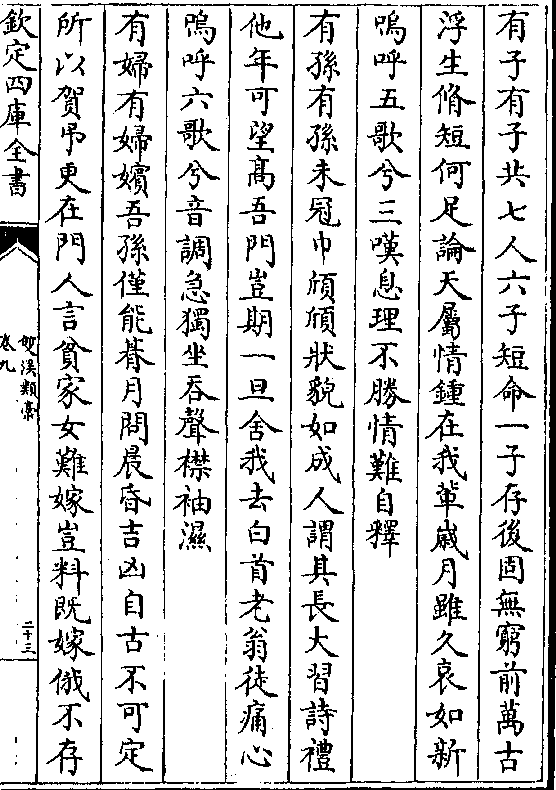 有子有子共七人六子短命一子存後固無窮前萬古
浮生脩短何足論天屬情鍾在我軰歲月雖久哀如新
嗚呼五歌兮三嘆息理不勝情難自釋
有孫有孫未冠巾頎頎狀貌如成人謂其長大習詩禮
他年可望髙吾門豈期一旦舍我去白首老翁徒痛心
嗚呼六歌兮音調急獨坐吞聲襟袖濕
有婦有婦嬪吾孫僅能朞月問晨昏吉凶自古不可定
所以賀弔更在門人言貧家女難嫁豈料既嫁俄不存
欽定四庫全書
雙溪類藁
卷九
二十三